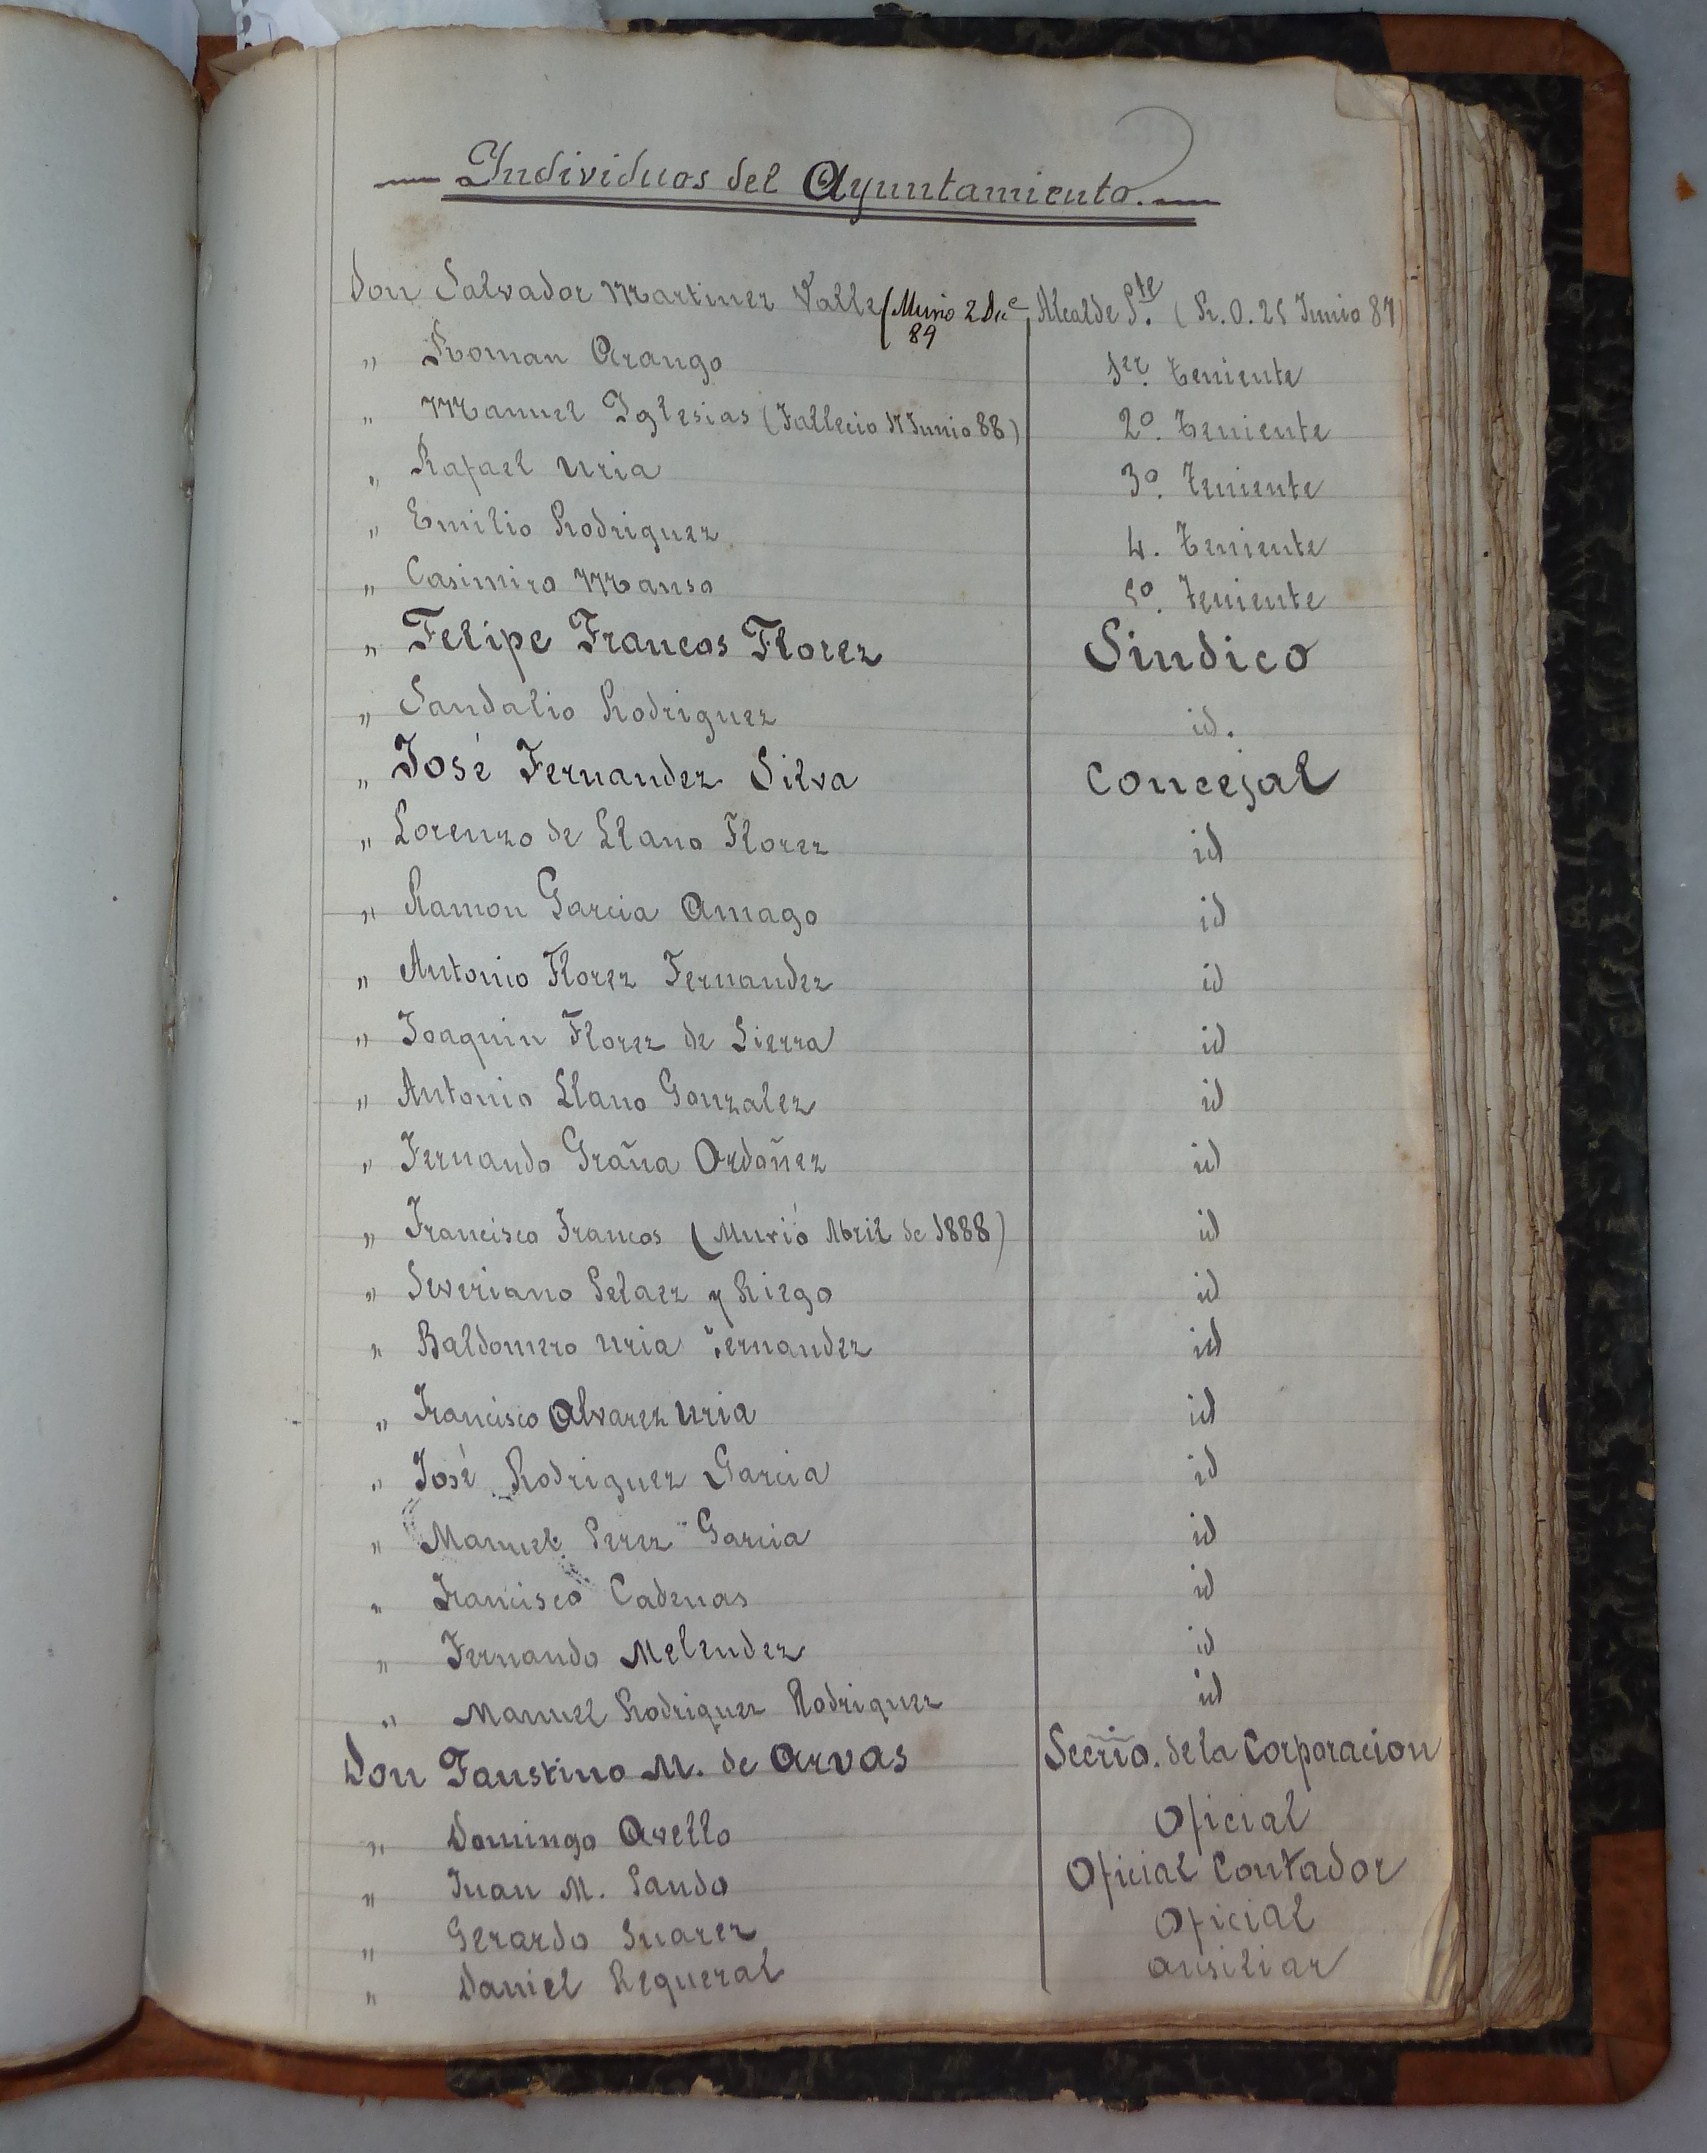 Individuos del Ayuntamiento.
Don Salvador Martinez Valle (Murio 2 Dice 89 Alcalde Pte. (R. O. 25 Junio 87)
" Roman Arango 1er. teniente
" Manuel Iglesias (Fallecio 17 Junio 88) 2º. teniente
" Rafael Uria 3º. teniente
" Emilio Rodriguez 4. teniente
" Casimiro Manso 5º. teniente
" Felipe Francos Florez Sindico
" Sandalio Rodriguez id.
" José Fernandez Silva Concejal
" Lorenzo de Llano Florez id
" Ramon Garcia Amago id
" Antonio Florez Fernandez id
" Joaquin Florez de Sierra id
" Antonio Llano Gonzalez id
" Fernando Graña Ordoñez id
" Francisco Francos (Murió Abril de 1888) id
" Severiano Pelaez y Riego id
" Baldomero Uria Fernandez id
" Francisco Alvarez Uria id
" José Rodriguez Garcia id
" Manuel Perez Garcia id
" Francisco Cadenas id
" Fernando Melendez id
" Manuel Rodriguez Rodriguez id
Don Faustino M. de Arvas Secrio. de la Corporacion
" Domingo Avello Oficial
" Juan M. Pando Oficial Contador
" Gerardo Suarez Oficial
" Daniel Regueral ausiliar